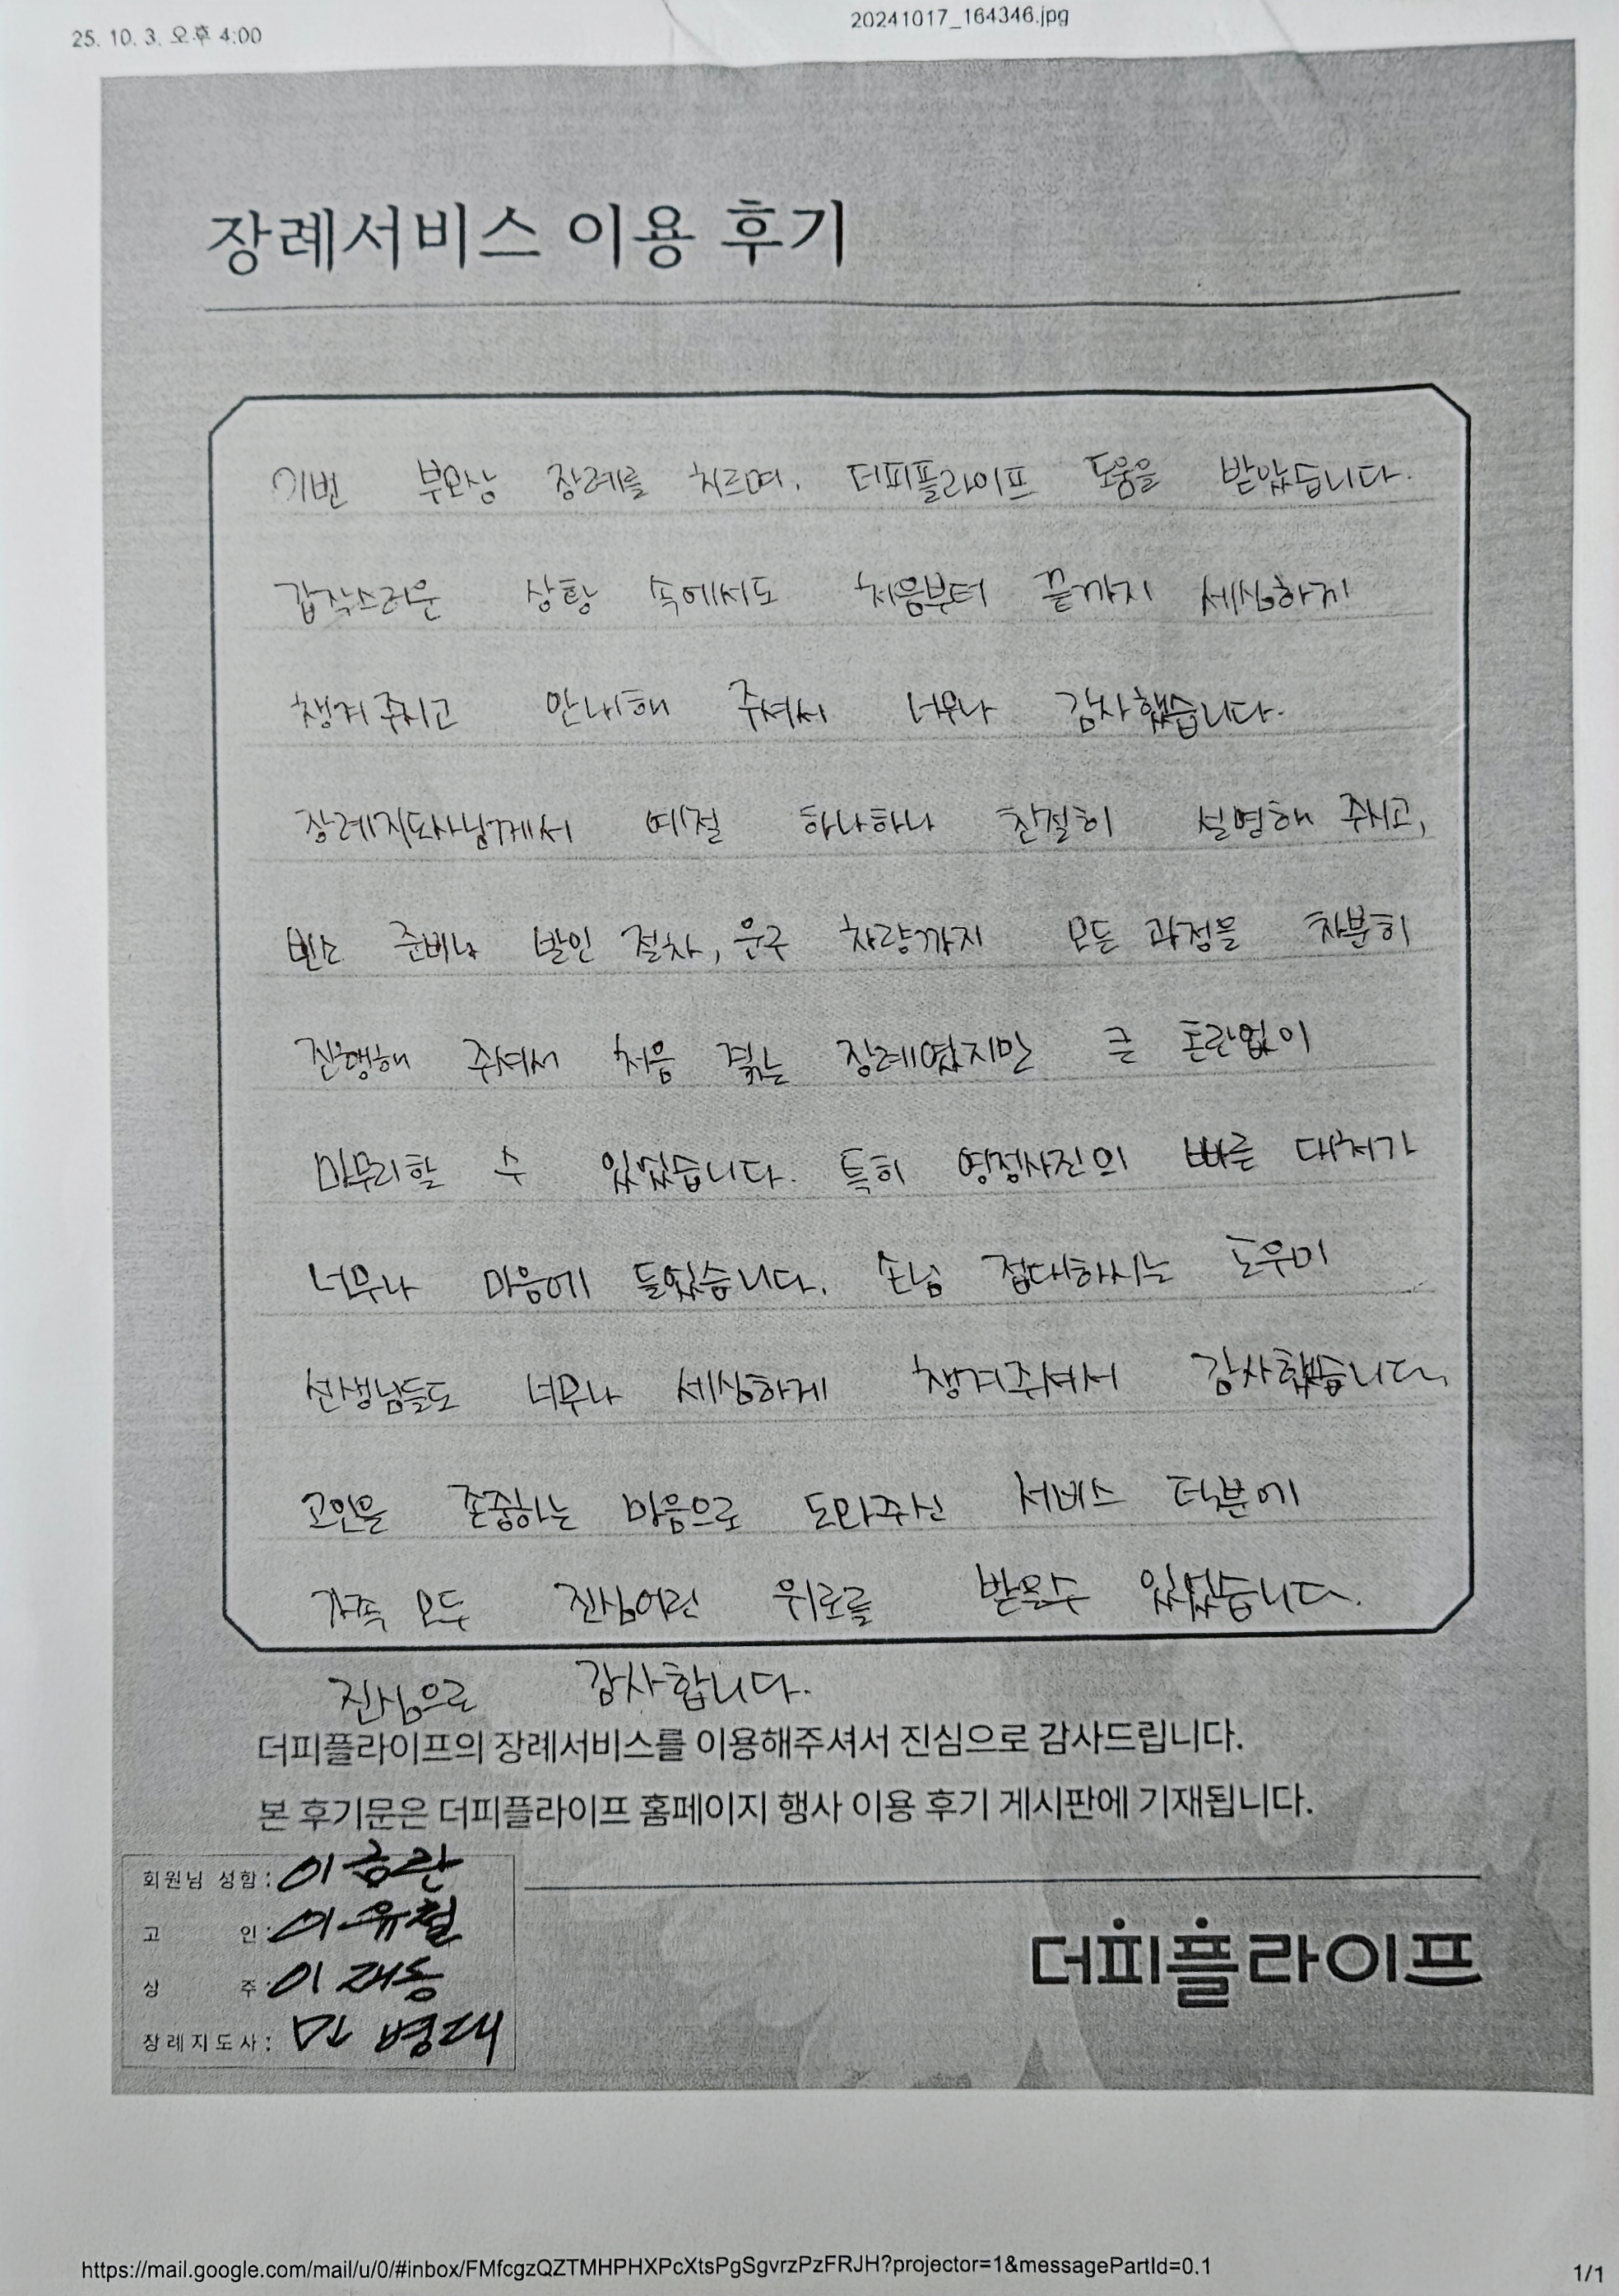 25. 10. 3. 오후 4:00
20241017_164346.jpg
장례서비스 이용 후기
이번 부모상 장례를 치르며, 더피플라이프 도움을 받았습니다.
갑작스러운 상황 속에서도 처음부터 끝까지 세심하게
챙겨주시고 안내해 주셔서 너무나 감사했습니다.
장례지도사님께서 예절 하나하나 친절히 설명해 주시고,
빈소 준비나 발인 절차, 운구 차량까지 모든 과정을 차분히
진행해 주셔서 처음 겪는 장례였지만 큰 혼란없이
마무리할 수 있었습니다. 특히 영정사진의 빠른 대처가
너무나 마음에 들었습니다. 손님 접대하시는 도우미
선생님들도 너무나 세심하게 챙겨주셔서 감사했습니다.
고인을 존중하는 마음으로 도와주신 서비스 덕분에
가족 모두 진심어린 위로를 받을수 있었습니다.
진심으로 감사합니다.
더피플라이프의 장례서비스를 이용해주셔서 진심으로 감사드립니다.
본 후기문은 더피플라이프 홈페이지 행사 이용 후기 게시판에 기재됩니다.
회원님 성함: 이승란
고 인: 이유철
상 주: 이재승
장례지도사: 민병대
더피플라이프
https://mail.google.com/mail/u/0/#inbox/FMfcgzQZTMHPHXPcXtsPgSgvrzPzFRJH?projector=1&messagePartId=0.1
1/1